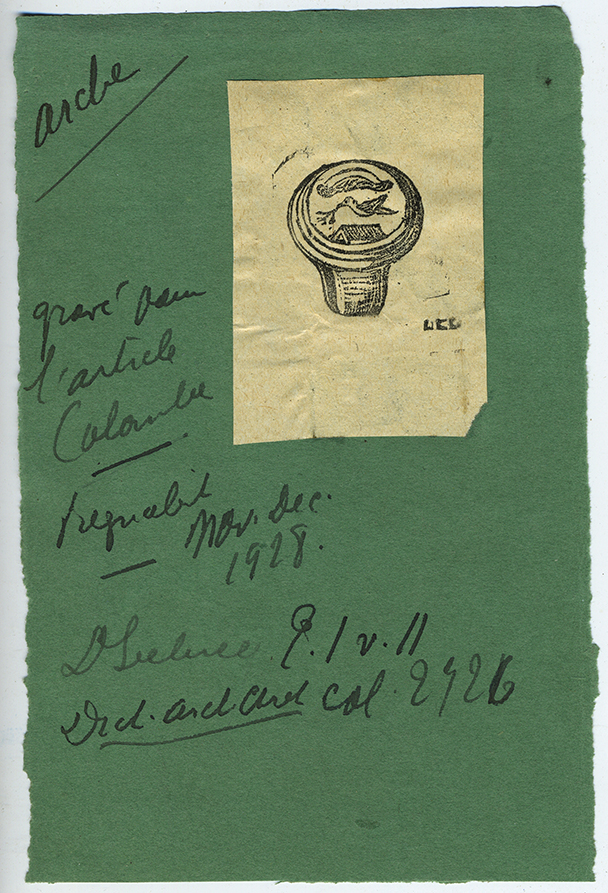 arche
gravé pour
l'article
Colombe
Regnabit
Nov. Dec.
1928.
D. Leclercq. T. I v. II
Dict. arch. chret col. 2726